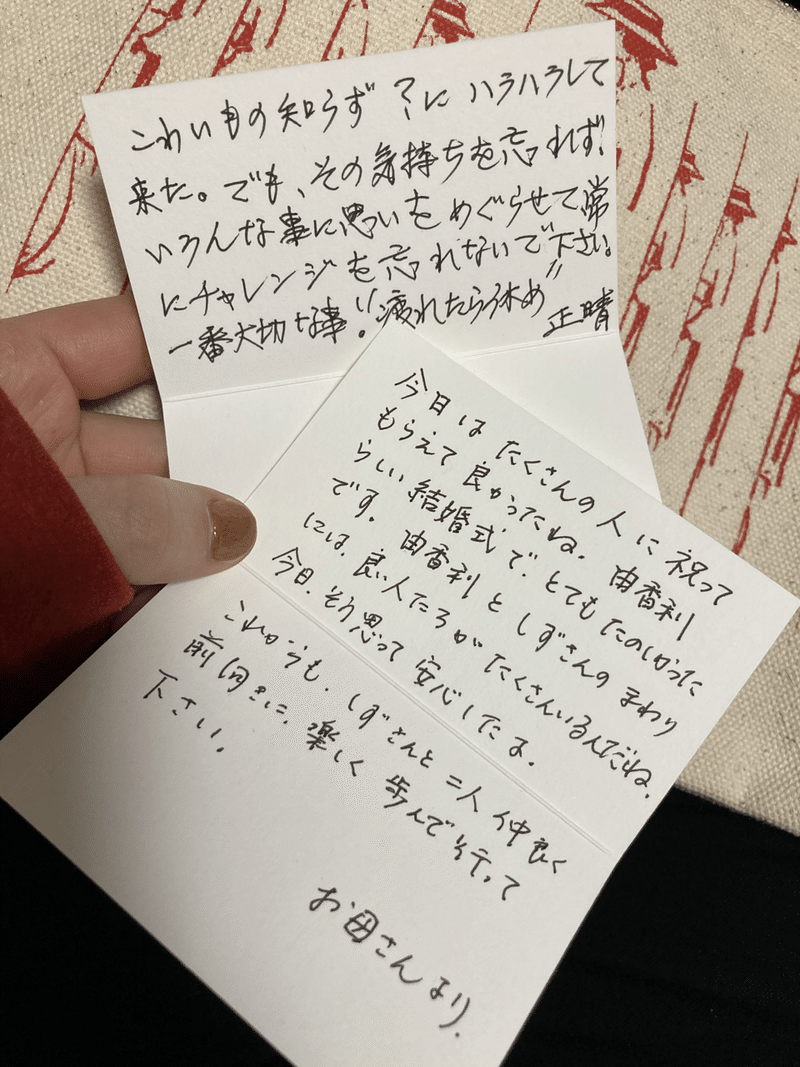 こわいもの知らず?にハラハラして
来た。でも、その気持ちを忘れず!
いろんな事に思いをめぐらせて常
にチャレンジを忘れないで下さい。
一番大切な事!!疲れたら休め"
正晴
今日は たくさんの人に祝って
もらえて良かったね。由香利
らしい結婚式で、とてもたのしかった
です。由香利としずさんのまわり
には、良い人たちがたくさんいるんだね。
今日、そう思って安心したよ。
これからも、しずさんと二人仲良く
前向きに、楽しく歩んで行って
下さい。
お母さんより.